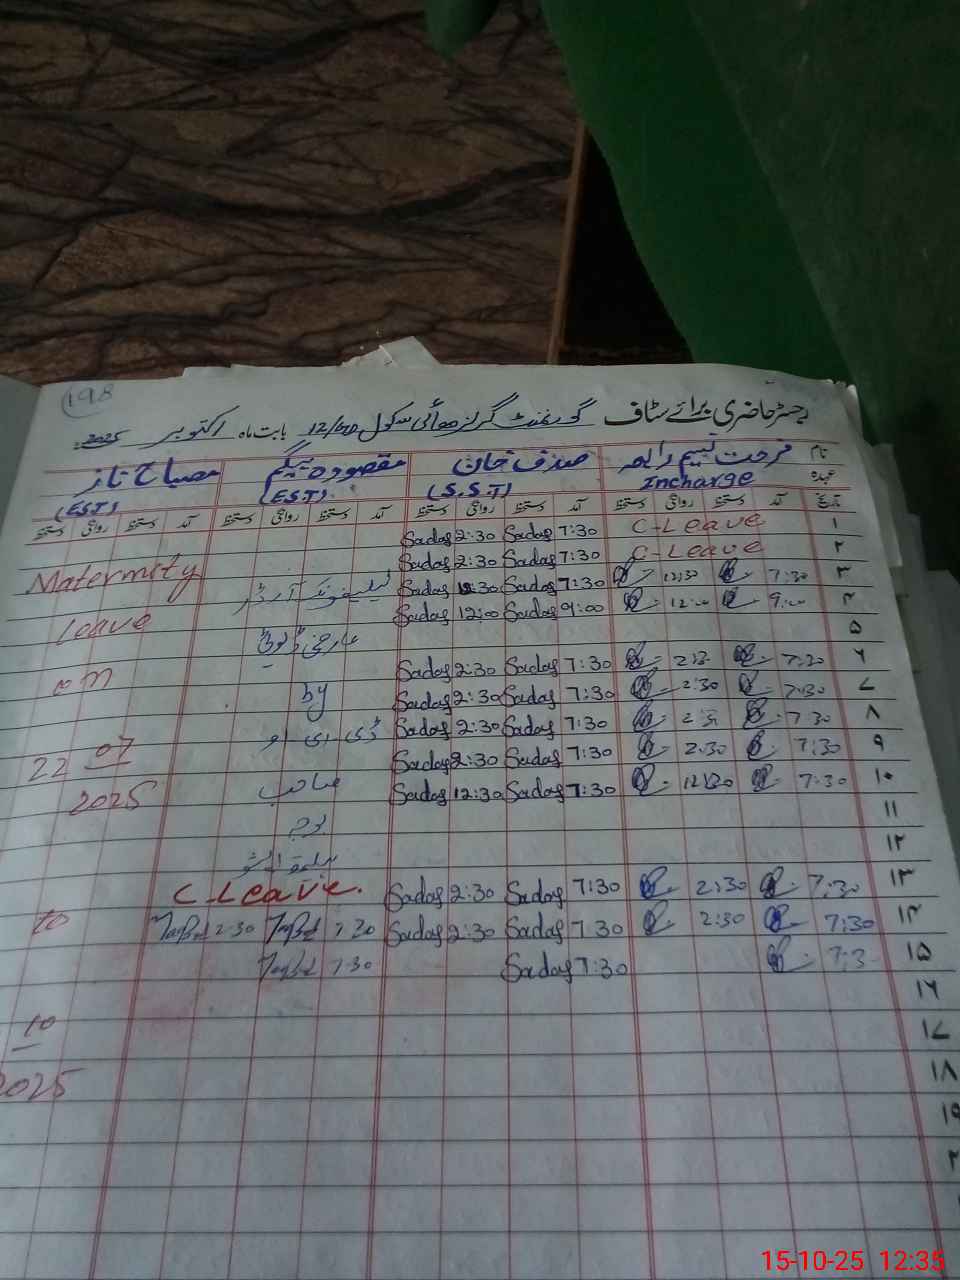 198
رجسٹر حاضری برائے سٹاف گورنمنٹ گرلز ہائی سکول 12/4D بابت ماہ اکتوبر 2025
نام فرحت نسیم رابعہ صدف خان مقصودہ بیگم مصباح ناز
عہدہ Incharge (S.S.T) (EST) (EST)
تاریخ آمد دستخط روانگی دستخط آمد دستخط روانگی دستخط آمد دستخط روانگی دستخط آمد دستخط روانگی دستخط
۱ C-Leave 7:30 Sadaf 2:30 Sadaf
۲ C-Leave 7:30 Sadaf 2:30 Sadaf Maternity
۳ 7:30 12:30 7:30 Sadaf 12:30 Sadaf
۴ 9:00 12:00 9:00 Sadaf 12:00 Sadaf Leave
۵ عارضی ڈیوٹی
۶ 7:30 2:30 7:30 Sadaf 2:30 Sadaf on
۷ 7:30 2:30 7:30 Sadaf 2:30 Sadaf by
۸ 7:30 2:30 7:30 Sadaf 2:30 Sadaf ڈی ای او
۹ 7:30 2:30 7:30 Sadaf 2:30 Sadaf 22 07
۱۰ 7:30 12:30 7:30 Sadaf 12:30 Sadaf صاحب 2025
۱۱
۱۲
۱۳ 7:30 2:30 7:30 Sadaf 2:30 Sadaf C-Leave.
۱۴ 7:30 2:30 7:30 Sadaf 2:30 Sadaf 7:30 2:30 to
۱۵ 7:3 7:30 Sadaf 7:30
۱۶
۱۷ 10
۱۸ 2025
۱۹
15-10-25 12:35